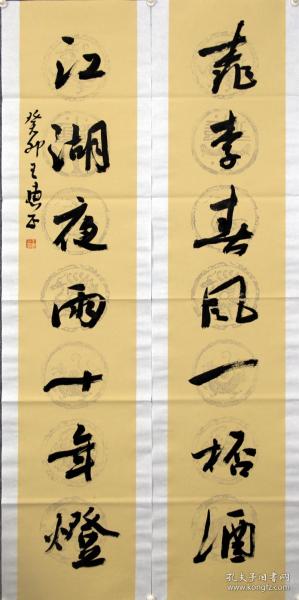 桃李春风一杯酒
江湖夜雨十年灯
癸卯
孔夫子旧书网